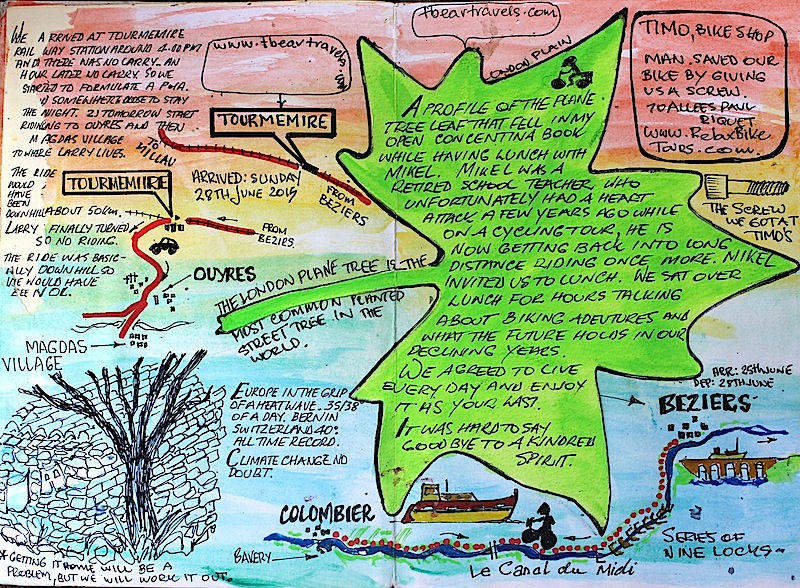 WE ARRIVED AT TOURMEMIRE
RAIL WAY STATION AROUND 4.00PM
AND THERE WAS NO CARRY. AN
HOUR LATER NO CARRY. SO WE
STARTED TO FORMULATE A
1) SOMEWHERE CLOSE TO STAY
THE NIGHT. 2) TOMORROW START
RIDING TO OUYRES AND THEN
MAGDAS VILLAGE
TO WHERE LARRY LIVES.
THE RIDE
WOULD
HAVE
BEEN
DOWNHILL ABOUT 50KM.
LARRY FINALLY TURNED
SO NO RIDING.
THE RIDE WAS BASIC-
ALLY DOWN HILL SO
WE WOULD HAVE
BEEN OK.
www.tbeartravels.
TOURMEMIRE
TO
MILLAU
ARRIVED: SUNDAY
28TH JUNE 2019
FROM
BEZIERS
TOURMEMIIRE
FROM
BEZIERS
OUYRES
MAGDAS
VILLAGE
tbeartravels.com
LONDON PLAIN
A PROFILE OF THE PLANE
TREE LEAF THAT FELL IN MY
OPEN CONCENTINA BOOK
WHILE HAVING LUNCH WITH
MIKEL. MIKEL WAS A
RETIRED SCHOOL TEACHER WHO
UNFORTUNATELY HAD A HEART
ATTACK A FEW YEARS AGO WHILE
ON A CYCLING TOUR, HE IS
NOW GETTING BACK INTO LONG
DISTANCE RIDING ONCE MORE. MIKEL
INVITED US TO LUNCH. WE SAT OVER
LUNCH FOR HOURS TALKING
ABOUT BIKING ADEUTURES AND
WHAT THE FUTURE HOLDS IN OUR
DECLINING YEARS.
WE AGREED TO LIVE
EVERY DAY AND ENJOY
IT AS YOUR LAST.
IT WAS HARD TO SAY
GOODBYE TO A KINDRED
SPIRIT.
THE LONDON PLANE TREE IS THE
MOST COMMON PLANTED
STREET TREE IN THE
WORLD.
EUROPE IN THE GRIP
OF A HEATWAVE. 35/38
OF A DAY. BERN IN
SWITZERLAND 40°
ALL TIME RECORD.
CLIMATE CHANGE NO
DOUBT.
TIMO, BIKE SHOP
MAN, SAVED OUR
BIKE BY GIVING
US A SCREW.
70 ALLEES PAUL
RIQUET
www.RelaxBike
Tours.com.
THE SCREW
WE GOT AT
TIMO'S
ARR: 25TH JUNE
DEP: 28TH JUNE
BEZIERS
SERIES OF
NINE LOCKS
COLOMBIER
BAKERY
Le Canal du Midi
*GETTING IT HOME WILL BE A
PROBLEM, BUT WE WILL WORK IT OUT.